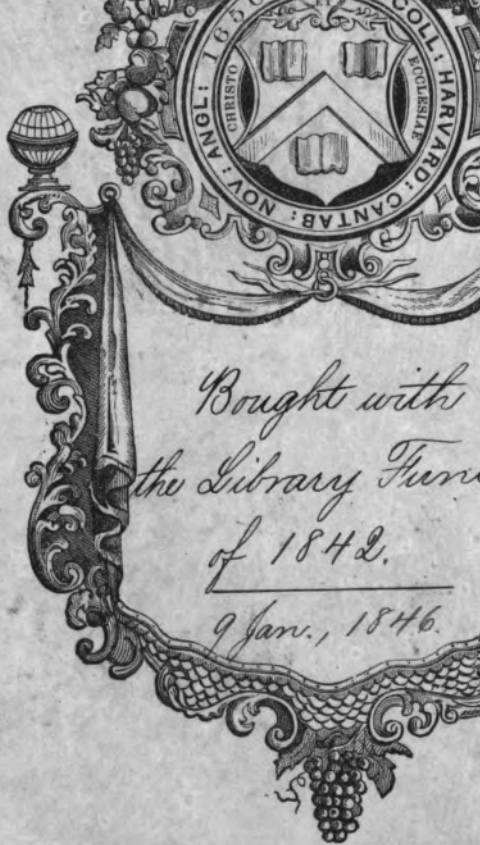 COLL: HARVARD: CANTAB: NOV: ANGL: 1650
CHRISTO
ECCLESIAE
Bought with
the Library Fun
of 1842.
9 Jan., 1846.